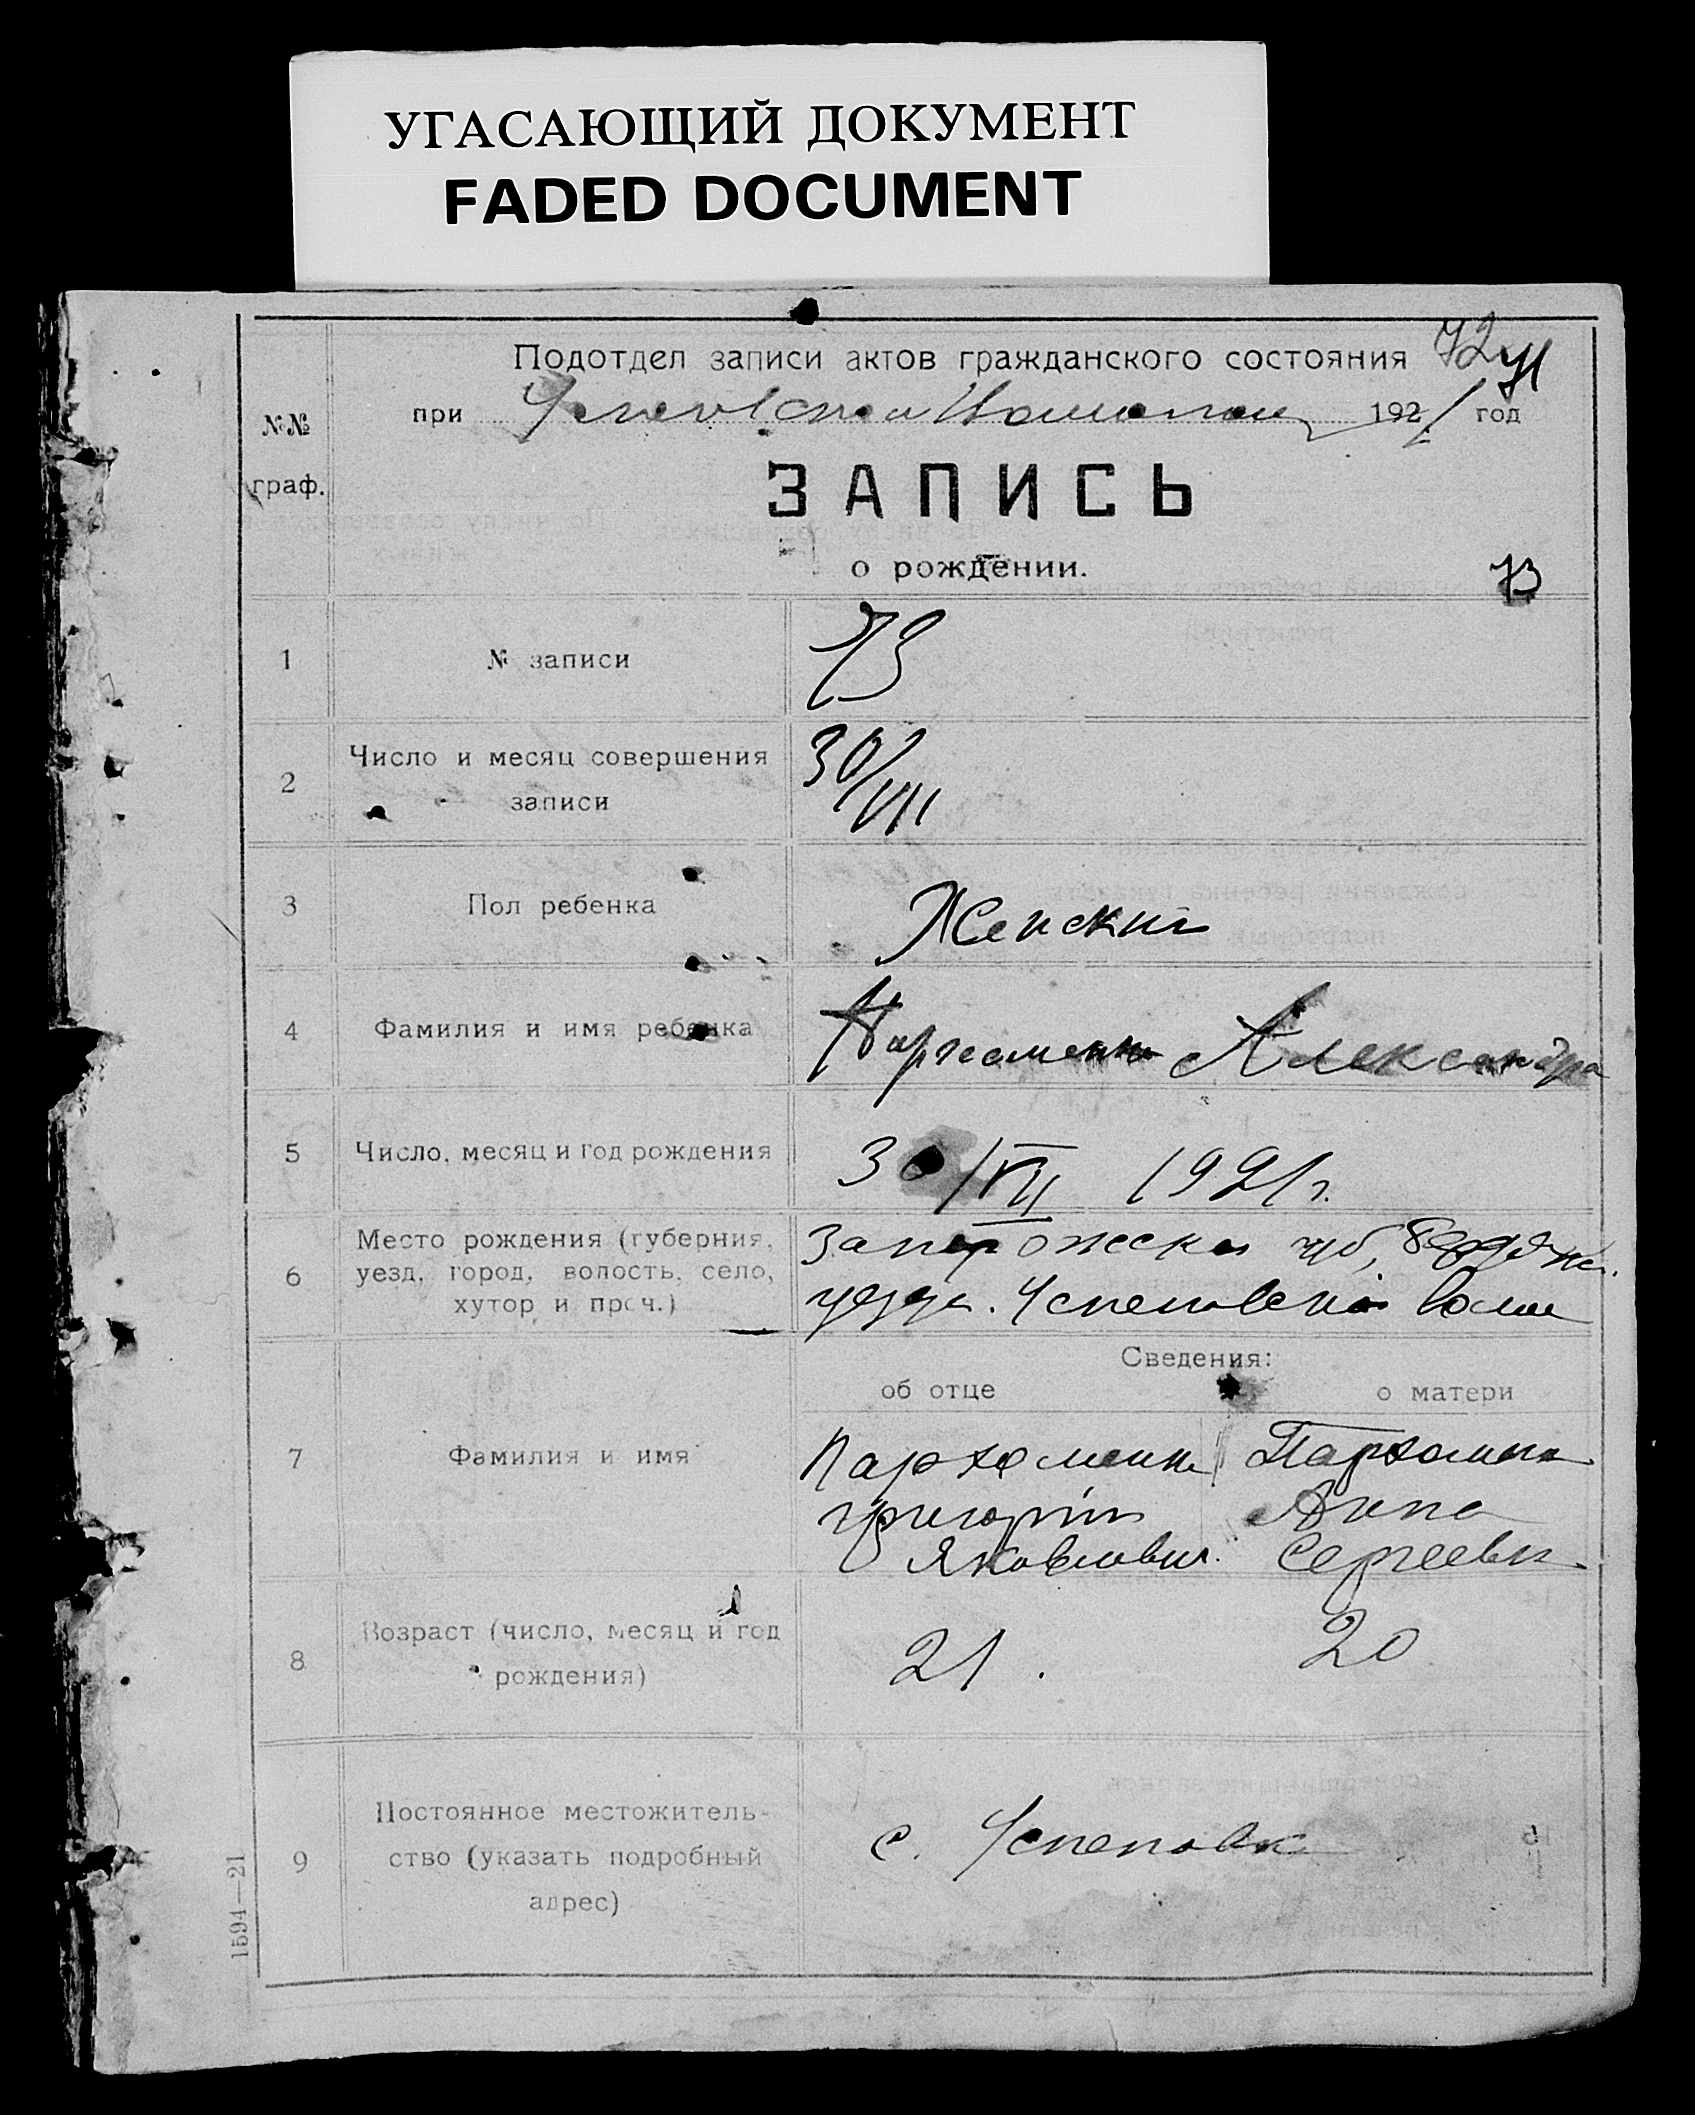 УГАСАЮЩИЙ ДОКУМЕНТ
FADED DOCUMENT
Подотдел записи актов гражданского состояния 72
при 1921 год
№№
граф.
ЗАПИСЬ
о рождении.
73
1 № записи 73
2 Число и месяц совершения
записи
30/VII
3 Пол ребенка Женский
4 Фамилия и имя ребенка Пархоменко Александра
5 Число, месяц и год рождения 30/VII 1921 г.
6 Место рождения (губерния,
уезд, город, волость, село,
хутор и проч.)
Запорожская губ, Бердянск.
уезда. Успеновской волос
Сведения:
об отце о матери
7 Фамилия и имя
Пархоменко Пархоменко
Григорий Анна
Яковлевич. Сергеевн
8 Возраст (число, месяц и год
рождения)
21. 20
9 Постоянное местожитель-
ство (указать подробный
адрес)
с. Успеновка
1594—21